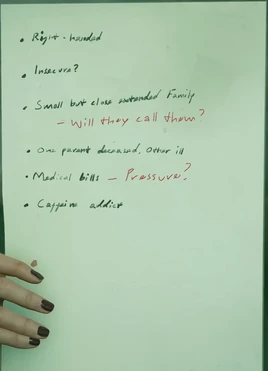 • Right-handed
• Insecure?
• Small but close extended Family
- Will they call them?
• One parent deceased, Other ill
• Medical bills - Pressure?
• Caffeine addict